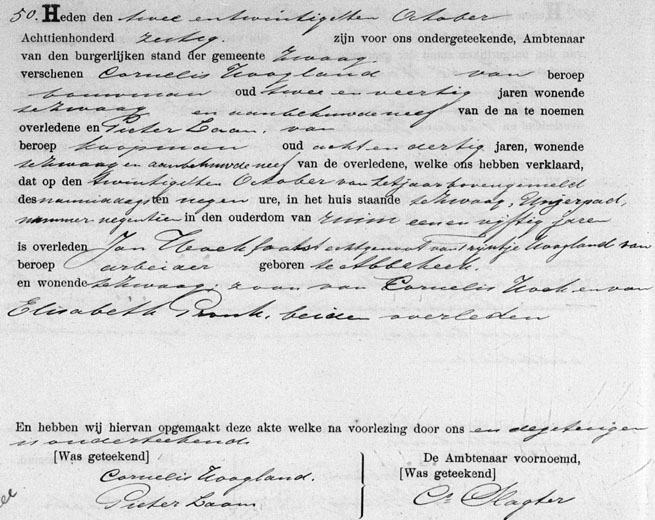 50. Heden den twee en twintigsten October
Achttienhonderd zestig zijn voor ons ondergeteekende, Ambtenaar
van den burgerlijken stand der gemeente Zwaag
verschenen Cornelis Hoogland van beroep
bouwman oud twee en veertig jaren wonende
te Zwaag en aanbehuwdeneef van de na te noemen
overledene en Pieter Laan, van
beroep koopman oud acht en dertig jaren, wonende
te Zwaag en aanbehuwde neef van de overledene, welke ons hebben verklaard,
dat op den twintigsten October van het jaar bovengemeld
des namiddags ten negen ure, in het huis staande te Zwaag,
nummer negentien in den ouderdom van ruim een en vijftig jaren
is overleden Jan Hoek laatst echtgenoot van Trijntje Hoogland van
beroep arbeider geboren te Abbekerk.
en wonende te Zwaag, zoon van Cornelis Hoek en van
Elisabeth Pronk, beiden overleden
En hebben wij hiervan opgemaakt deze akte welke na voorlezing door ons en degetuigen
is onderteekend.
[Was geteekend] De Ambtenaar voornoemd,
[Was geteekend]
Cornelis Hoogland.
Pieter Laan. Cs Slagter